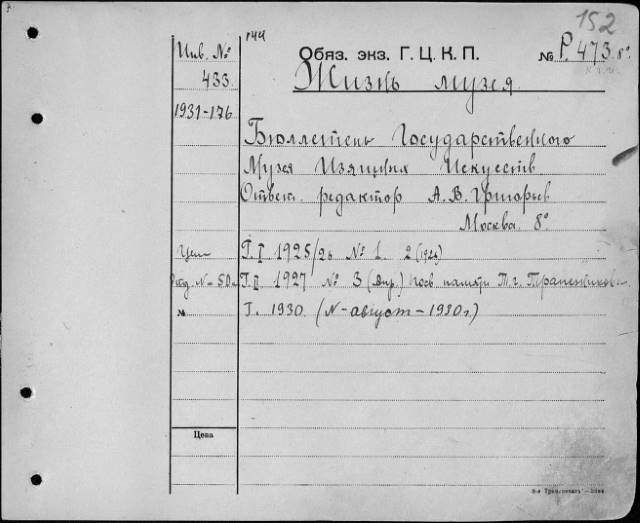 152
144
Инв. №
433
1931-176
Обяз. экз. Г. Ц. К. П.
№ Р.473. 8°
Жизнь музея
Бюллетень Государственного
Музея Изящных Искусств
Ответ. редактор А. В. Григорьев
Москва. 8°
Цен
Т. I 1925/26 № 1. 2 (1926)
отд. №-50к
Т. II 1927 № 3 (апр.) посв. памяти Т. Г. Трапезникова
№
Т. 1930. (№-август-1930 г.)
Цена